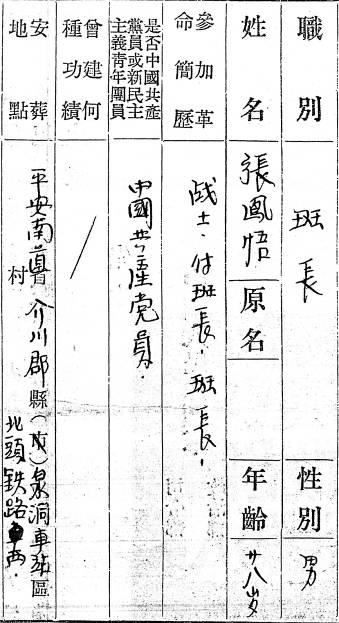 職別 班長 性別 男
姓名 張鳳悟 原名 年齡 廿八岁
參加革命簡歷 战士．付班長．班長．
是否中國共產黨員或新民主主義青年團員 中國共產党員．
曾建何種功績
安葬地點 平安南道 介川郡 縣（市）泉洞車站 區
村 北頭铁路西．